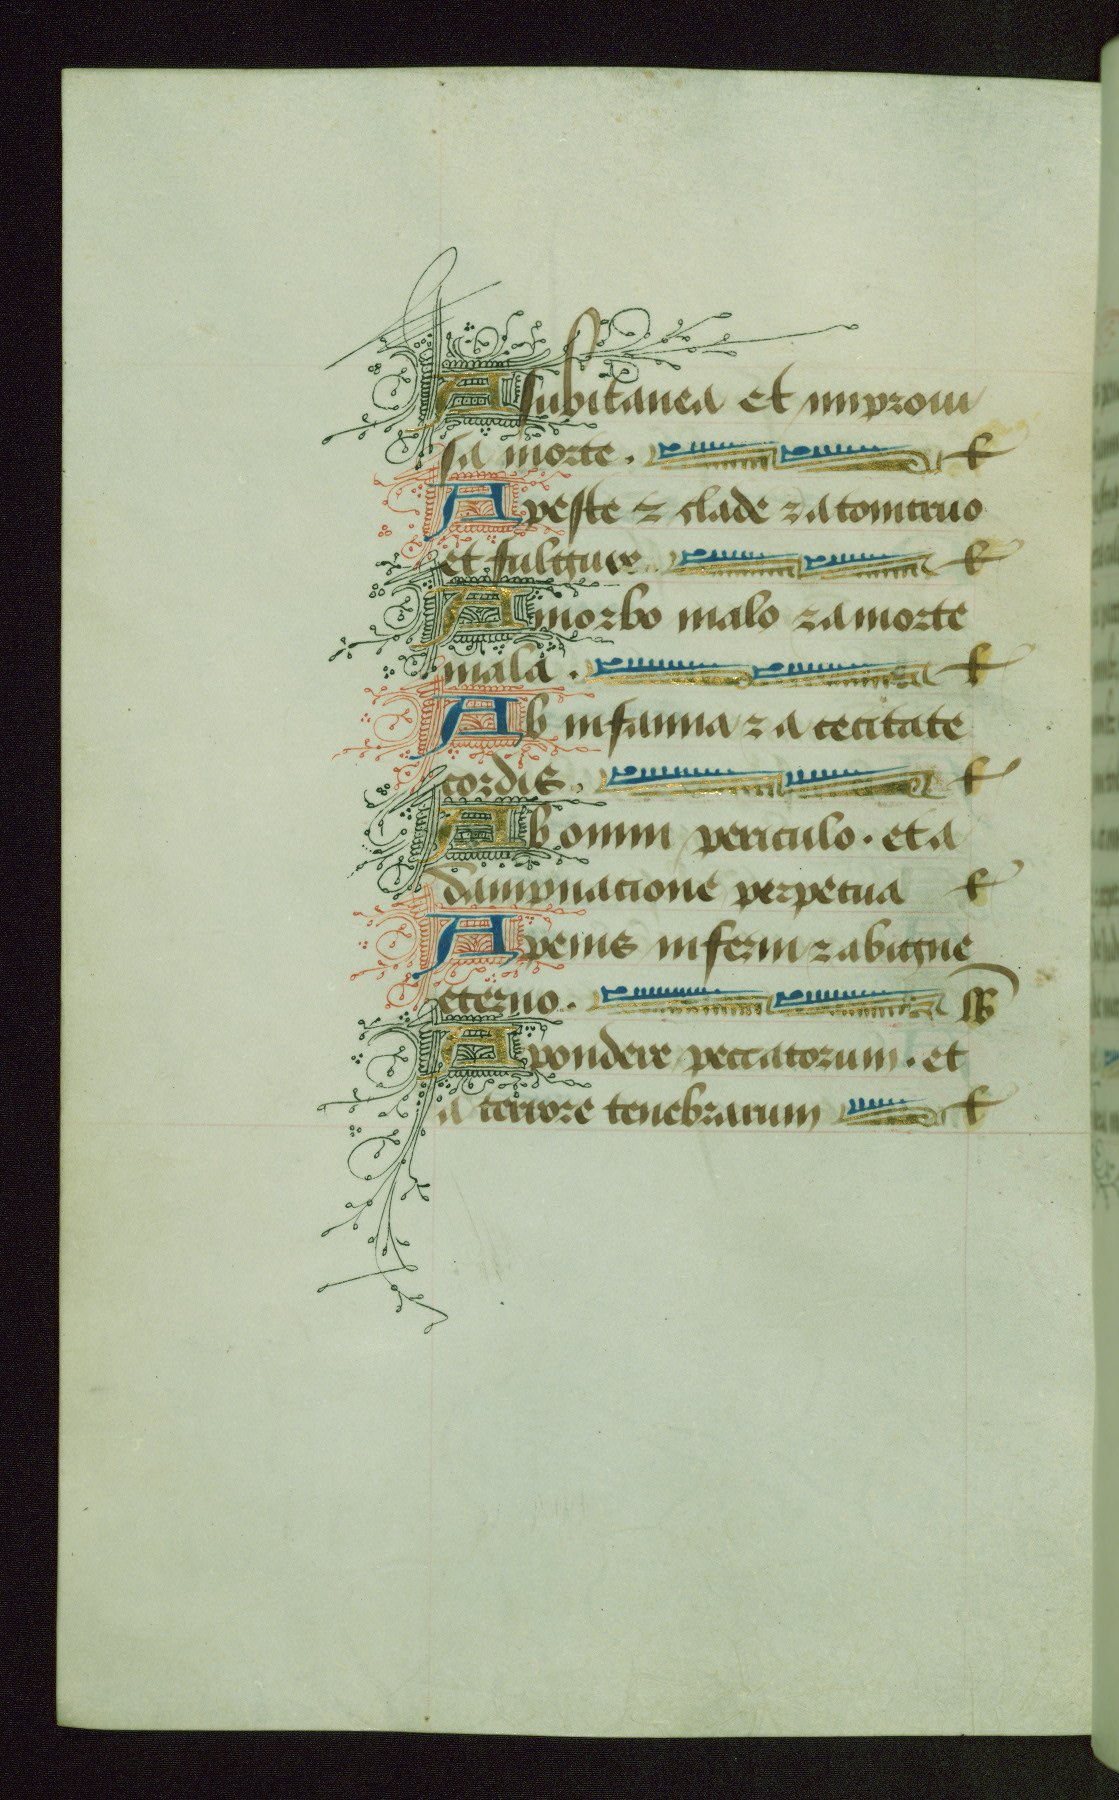 A subitanea et improui
sa morte. k
A peste ⁊ clade ⁊ a tonitruo
et fulgure. k
A morbo malo ⁊ a morte
mala. k
Ab insania ⁊ a cecitate
cordis. k
Ab omni periculo. et a
dampnacione perpetua k
A penis inferni ⁊ ab igne
eterno.
A pondere peccatorum. et
a terrore tenebrarum k